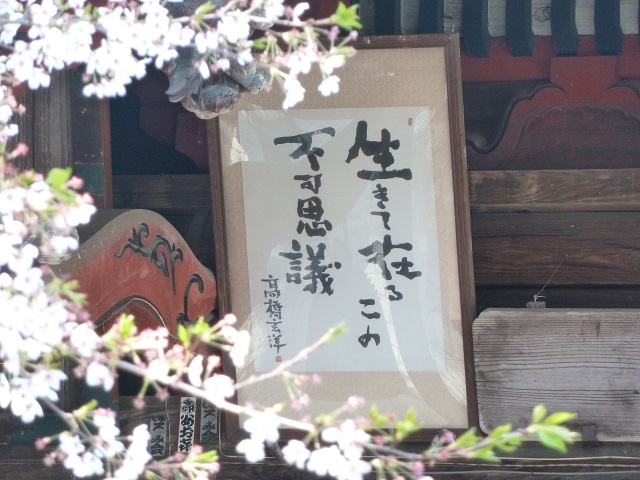 生きて在るこの
不可思議
高橋玄洋